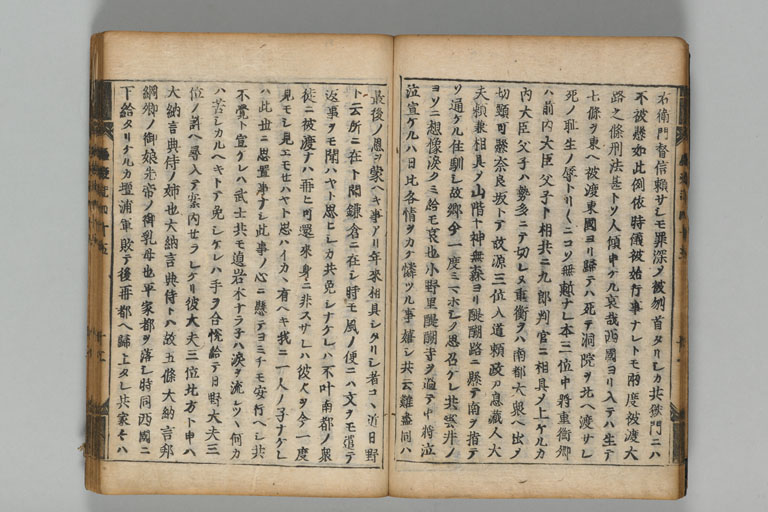 右衛門督信頼サシモ罪深ノ被刎首タリシカ共獄門ニハ
不被懸如此例依時儀被始行事ナレトモ兩度被渡大
路之條刑法甚トソ人傾申ケル哀哉西國ヨリ入テハ生テ
七條ヲ東ヘ被渡東國ヨリ歸テハ死テ洞院ヲ北ヘ渡サレ
死ノ耻生ノ辱トリ〳〵ニコソ無慙ナレ本三位中將重衡卿
ハ前内大臣父子ト相共ニ九郎判官ニ相具メ上ケルカ
内大臣父子ハ勢多ニテ切レヌ重衡ヲハ南都大衆ヘ出メ
切頸可懸奈良坂トテ故源三位入道頼政ノ息藏人大
夫頼兼相具メ山階十神無森ヨリ醍醐路ニ懸テ南ヲ指テ
ソ通ケル住馴シ故郷今一度ミマホシク思召ケレ共雲井ノ
ヨソニ想像涙クミ給モ哀也小野里醍醐寺ヲ過テ中將泣
泣宣ケルハ日比各情ヲカケ憐ツル事嬉シ共云難盡同ハ
最後ノ恩ヲ蒙ヘキ事アリ年來相具シタリシ者コヽ近日野
ト云所ニ在ト聞鎌倉ニ在シ時モ風ノ便ニハ文ヲモ遣テ
返事ヲモ聞ハヤト思ヒシカ共免シナケレハ不叶南都ノ衆
徒ニ被渡ナハ再ヒ可還來身ニ非スサレハ彼人ヲ今一度
見モシ見エモセハヤト思ハイカヽ有ヘキ我ニ一人ノ子ナケレ
ハ此世ニ思置事ナシ此事ノ心ニ懸テヨミチモ安行ヘシ共
不覺ト宣ケレハ武士共モ迫岩木ナラネハ涙ヲ流シツヽ何カ
ハ苦シカルヘキトテ免シケレハ手ヲ合悦給テ日野大夫三
位ノ許ヘ尋入テ案内セラレケリ彼大夫三位北方ト申ハ
大納言典侍ノ姉也大納言典侍トハ故五條大納言邦
綱卿ノ御娘先帝ノ御乳母也平家都ヲ落シ時同西國ニ
下給タリケルカ壇浦軍敗テ後再都ヘ歸上タレ共家々ハ